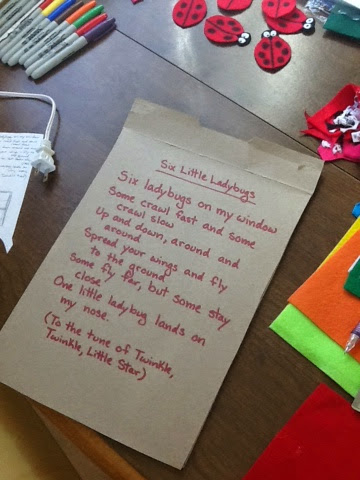 Six Little Ladybugs
Six ladybugs on my window
Some crawl fast and some
crawl slow
Up and down, around and
around
Spread your wings and fly
to the ground
Some fly far, but some stay
close
One little ladybug lands on
my nose.
(To the tune of Twinkle,
Twinkle, Little Star)